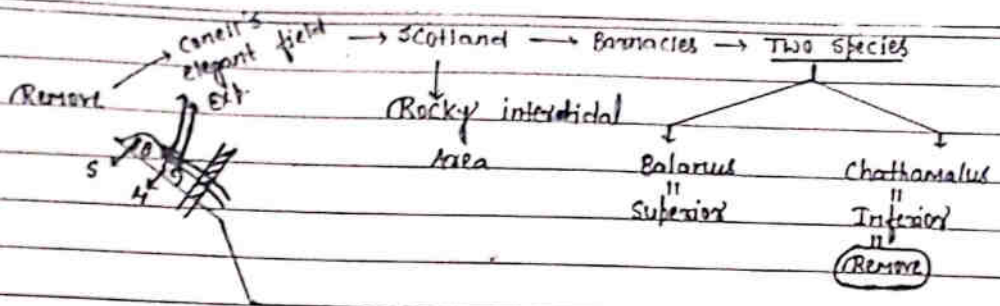 Remove → Conell's elegant field Exp. → Scotland → Barnacles → Two Species
Rocky interdidal Area
Balanus
"
Superior
Chathamalus
"
Inferior
"
Remove